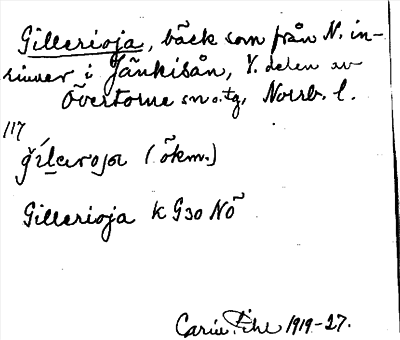 Gillerioja, bäck som från N. in-
rinner i Jänkisån, V. delen av
Övertorne sn o. tg, Norrb. l.
117
(ökm.)
Gillerioja k G30 NÖ
Carin Pihl 1919-27.